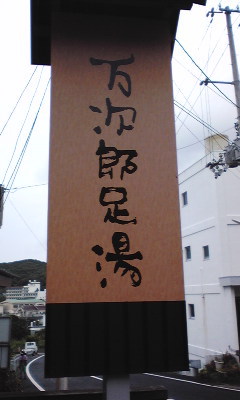 万次郎足湯